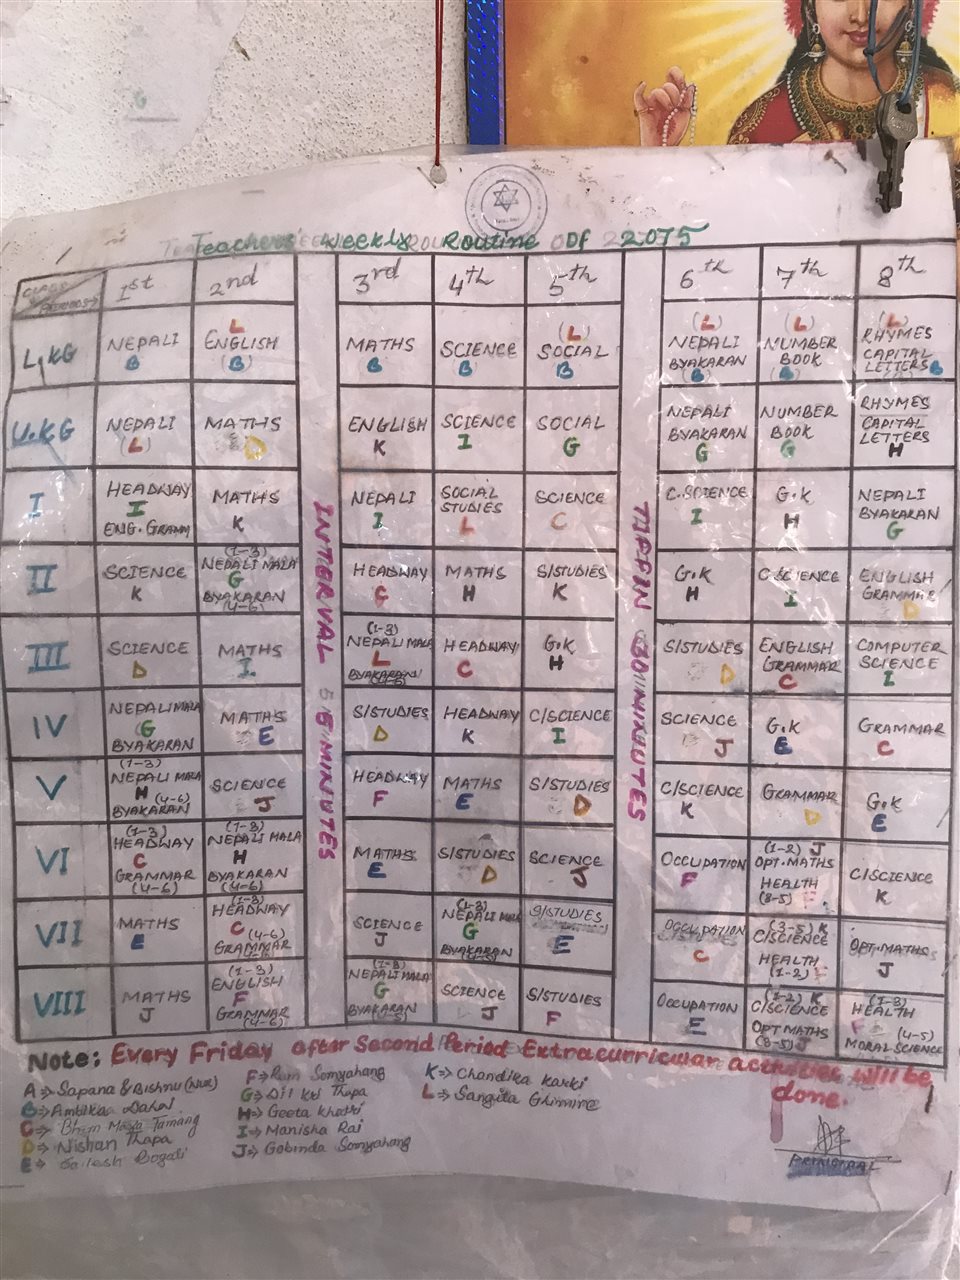 Teachers' Weekly Routine OF 2075
CLASS PERIODS 1st 2nd 3rd 4th 5th 6th 7th 8th
L.KG NEPALI B L ENGLISH (B) MATHS B SCIENCE (B) (L) SOCIAL B (L) NEPALI BYAKARAN (B) (L) NUMBER BOOK (B) (L) RHYMES CAPITAL LETTERS B
U.KG NEPALI (L) MATHS D ENGLISH K SCIENCE I SOCIAL G NEPALI BYAKARAN G NUMBER BOOK G RHYMES CAPITAL LETTERS H
I HEADWAY I ENG. GRAMM MATHS K NEPALI I SOCIAL STUDIES L SCIENCE C C.SCIENCE I G.K H NEPALI BYAKARAN G
II SCIENCE K (1-3) NEPALI MALA G BYAKARAN (4-6) HEADWAY C MATHS H S/STUDIES K G.K H C/SCIENCE I ENGLISH GRAMMAR D
III SCIENCE D MATHS I (1-3) NEPALI MALA L BYAKARAN (4-6) HEADWAY C G.K H S/STUDIES D ENGLISH GRAMMAR C COMPUTER SCIENCE I
IV NEPALI MALA G BYAKARAN MATHS E S/STUDIES D HEADWAY K C/SCIENCE I SCIENCE J G.K E GRAMMAR C
V (1-3) NEPALI MALA H (4-6) BYAKARAN SCIENCE J HEADWAY F MATHS E S/STUDIES D C/SCIENCE K GRAMMAR D G.K E
VI (1-3) HEADWAY C GRAMMAR (4-6) (1-3) NEPALI MALA H BYAKARAN (4-6) MATHS E S/STUDIES D SCIENCE J OCCUPATION F (1-2) J OPT.MATHS HEALTH (3-5) F C/SCIENCE K
VII MATHS E (1-3) HEADWAY C (4-6) GRAMMAR SCIENCE J (1-3) NEPALI MALA G BYAKARAN S/STUDIES E OCCUPATION C (3-5) K C/SCIENCE HEALTH (1-2) F OPT.MATHS J
VIII MATHS J (1-3) ENGLISH F GRAMMAR (4-6) (1-3) NEPALI MALA G BYAKARAN SCIENCE J S/STUDIES F OCCUPATION E (1-2) K C/SCIENCE OPT MATHS (3-5) J (1-3) HEALTH F (4-5) MORAL SCIENCE
INTERVAL 5 MINUTES
TIFFIN 30 MINUTES
Note: Every Friday after Second Period Extracurricular activities will be done.
A => Sapana & Bishnu (Nur) F => Ram Somyahang K => Chandika Karki
B => Ambikaa Dahal G => Dil Kri Thapa L => Sangita Ghimire
C => Bhim Maya Tamang H => Geeta Khatri
D => Nishan Thapa I => Manisha Rai
E => Sailesh Bogati J => Gobinda Somyahang
PRINCIPAL